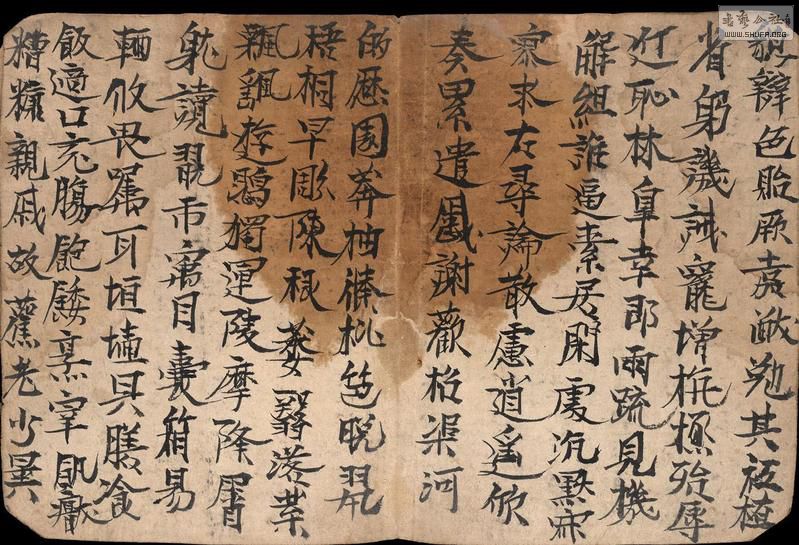 貌辯色貽厥嘉猷勉其祗植
省躬譏誡寵增抗極殆辱
近恥林皋幸即兩疏見機
解組誰逼索居閑處沉默寂
寥求古尋論散慮逍遙欣
奏累遣慼謝歡招渠河
的歷園莽抽條枇杷晚翠
梧桐早彫陳根委翳落葉
飄颻遊鵾獨運陵摩降霄
耽讀翫市寓目囊箱易
輶攸畏屬耳垣墻具膳飡
飯適口充腸飽飫烹宰飢厭
糟糠親戚故舊老少異
書藝公社
WWW.SHUFA.ORG